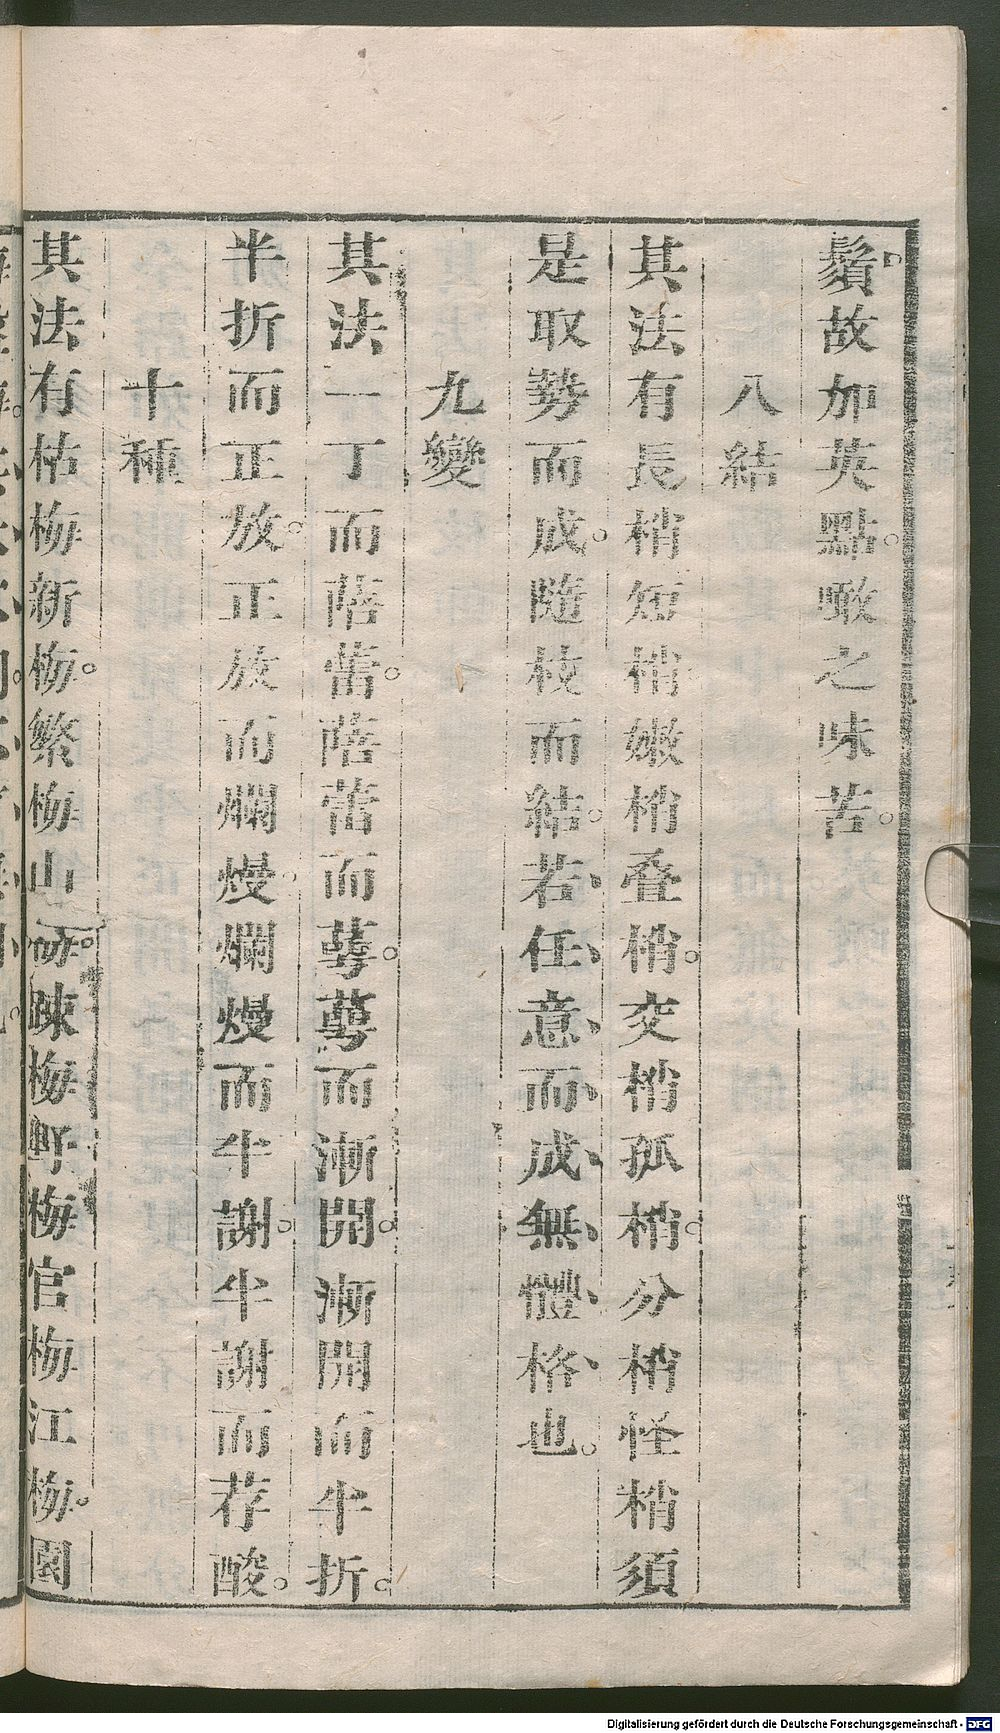 鬚。故加英點。噉之味苦。
八結
其法有長梢短梢嫩梢叠梢。交梢孤梢。分梢怪梢須
是取勢而成。隨枝而結。若、任、意、而、成、無、體、格、也。
九變
其法一丁而蓓蕾。蓓蕾而蕚。蕚而漸開。漸開而半折。
半折而正放。正放而爛熳。爛熳而半謝。半謝而荐酸。
十種
其法有枯梅新梅。繁梅山梅。疎梅野梅官梅江梅。園
Digitalisierung gefördert durch die Deutsche Forschungsgemeinschaft - DFG